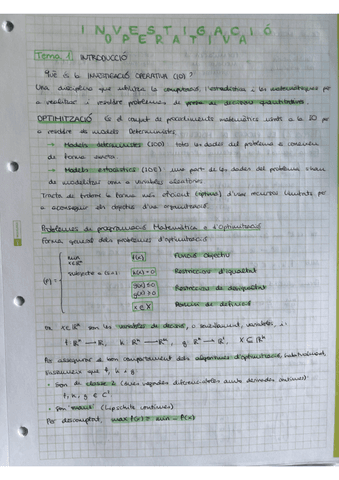 INVESTIGACIÓ
OPERATIVA
Tema 1 INTRODUCCIÓ
Què és la INVESTIGACIÓ OPERATIVA (IO)?
Una disciplina que utilitza la computació, l'estadística i les matemàtiques per
a analitzar i resoldre problemes de presa de decisions quantitatives.
OPTIMITZACIÓ És el conjunt de procediments matemàtics usats a la IO per
a resoldre els models deterministes.
→ Models deterministes (IOD) tots les dades del problema es coneixen
de forma exacta
→ Models estocàstics (IOE) una part de les dades del problema s'han
de modelitzar com a variables aleatòries
Tracta de trobar la forma més eficient (òptima) d'usar recursos limitats per
a aconseguir els objectius d'una organització.
Problemes de programació Matemàtica o d'Optimització
Forma general dels problemes d'optimització
(P) =
min x∈ℝⁿ f(x) Funció objectiu
subjecte a (s.a.) h(x) = 0 Restriccions d'igualtat
g(x) ≤ 0 Restriccions de desigualtat
g(x) ≥ 0
x ∈ X Domini de definició
On x∈ℝⁿ són les variables de decisió, o senzillament, variables, i:
f: ℝⁿ → ℝ, h: ℝⁿ → ℝᵐ, g: ℝⁿ → ℝˡ, X ⊆ ℝⁿ
Per assegurar el bon comportament dels algorismes d'optimització,
que f, h, g
• Són de classe 2 (dues vegades diferenciables amb derivades contínues):
f, h, g ∈ C²
• Són (Lipschitz contínues)
Per descomptat, max f(x) = min - f(x)